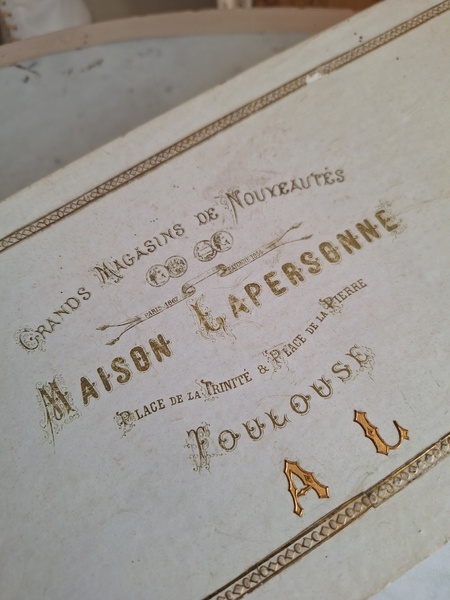 GRANDS MAGASINS DE NOUVEAUTÉS
PARIS 1867
MAISON LAPERSONNE
PLACE DE LA TRINITÉ & PLACE DE LA PIERRE
TOULOUSE
A L